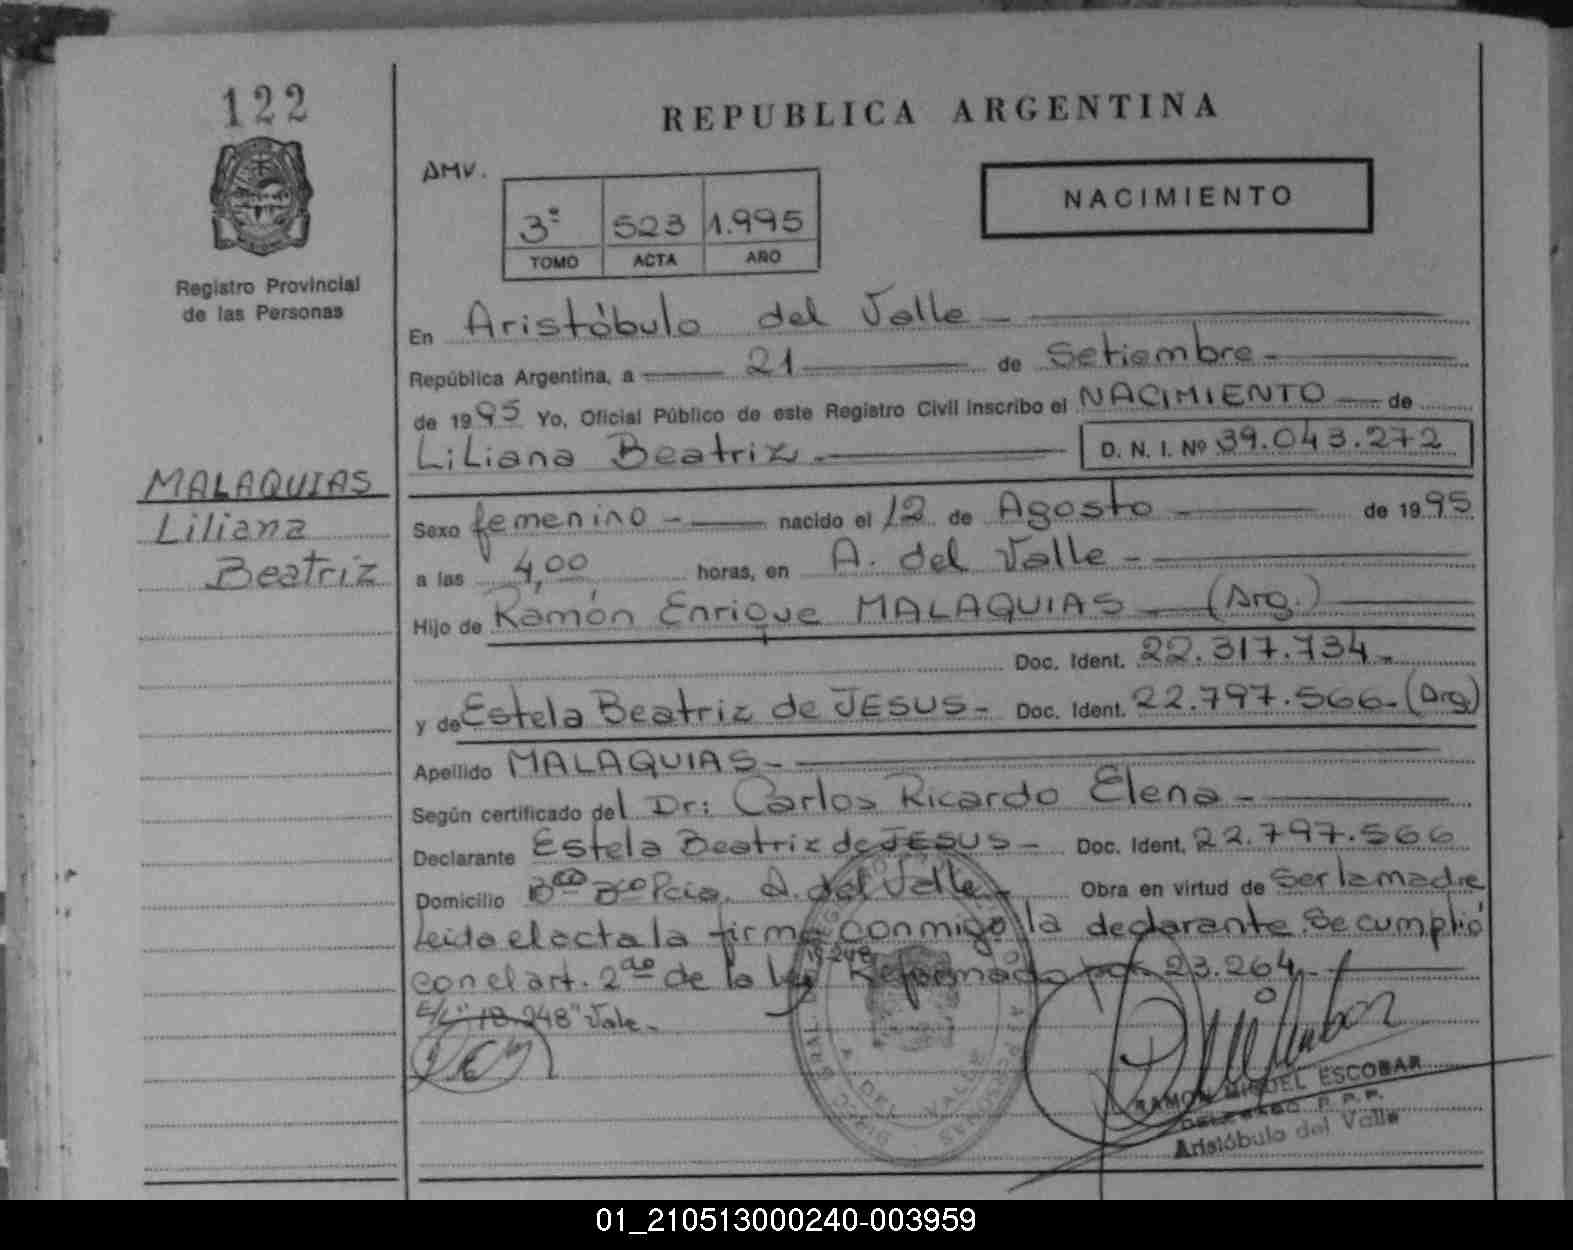 122
REPUBLICA ARGENTINA
AMV.
3º 523 1.995
TOMO ACTA AÑO
NACIMIENTO
Registro Provincial
de las Personas
En Aristóbulo del Valle -
República Argentina, a 21 de Setiembre -
de 1995 Yo, Oficial Público de este Registro Civil inscribo el NACIMIENTO de
Liliana Beatriz. D. N. I. Nº 39.043.272
MALAQUIAS
Liliana
Beatriz
Sexo femenino - nacido el 12 de Agosto - de 1995
a las 4,00 horas, en A. del Valle -
Hijo de Ramón Enrique MALAQUIAS (Arg.)
Doc. Ident. 22.317.734.-
y de Estela Beatriz de JESUS- Doc. Ident. 22.797.566-(Arg)
Apellido MALAQUIAS-
Según certificado del Dr: Carlos Ricardo Elena -
Declarante Estela Beatriz de JESUS - Doc. Ident. 22.797.566
Domicilio Pcia. A. del Valle - Obra en virtud de ser la madre
Leida el acta la firma conmigo la declarante. Se cumplió
18.248
con el art. 2do de la ley Reformado por 23.264.-
E/L "18.248" Vale.-
RAMON MIGUEL ESCOBAR
DELEGADO R.P.P.
Aristóbulo del Valle
A. DEL VALLE
01_210513000240-003959